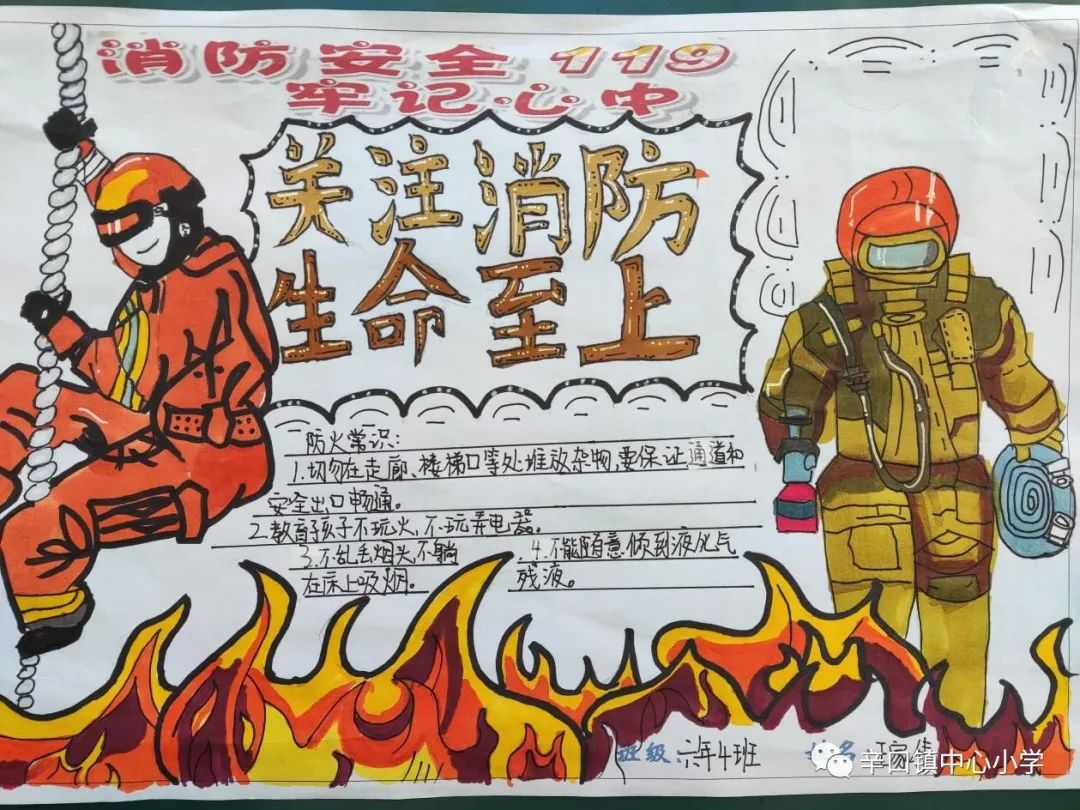 消防安全119
牢记心中
关注消防
生命至上
防火常识:
1.切勿在走廊、楼梯口等处堆放杂物,要保证通道和
安全出口畅通。
2.教育孩子不玩火,不玩弄电器。
3.不乱丢烟头,不躺
在床上吸烟。
4.不能随意倾倒液化气
残液。
班级:六年4班
名
辛口镇中心小学